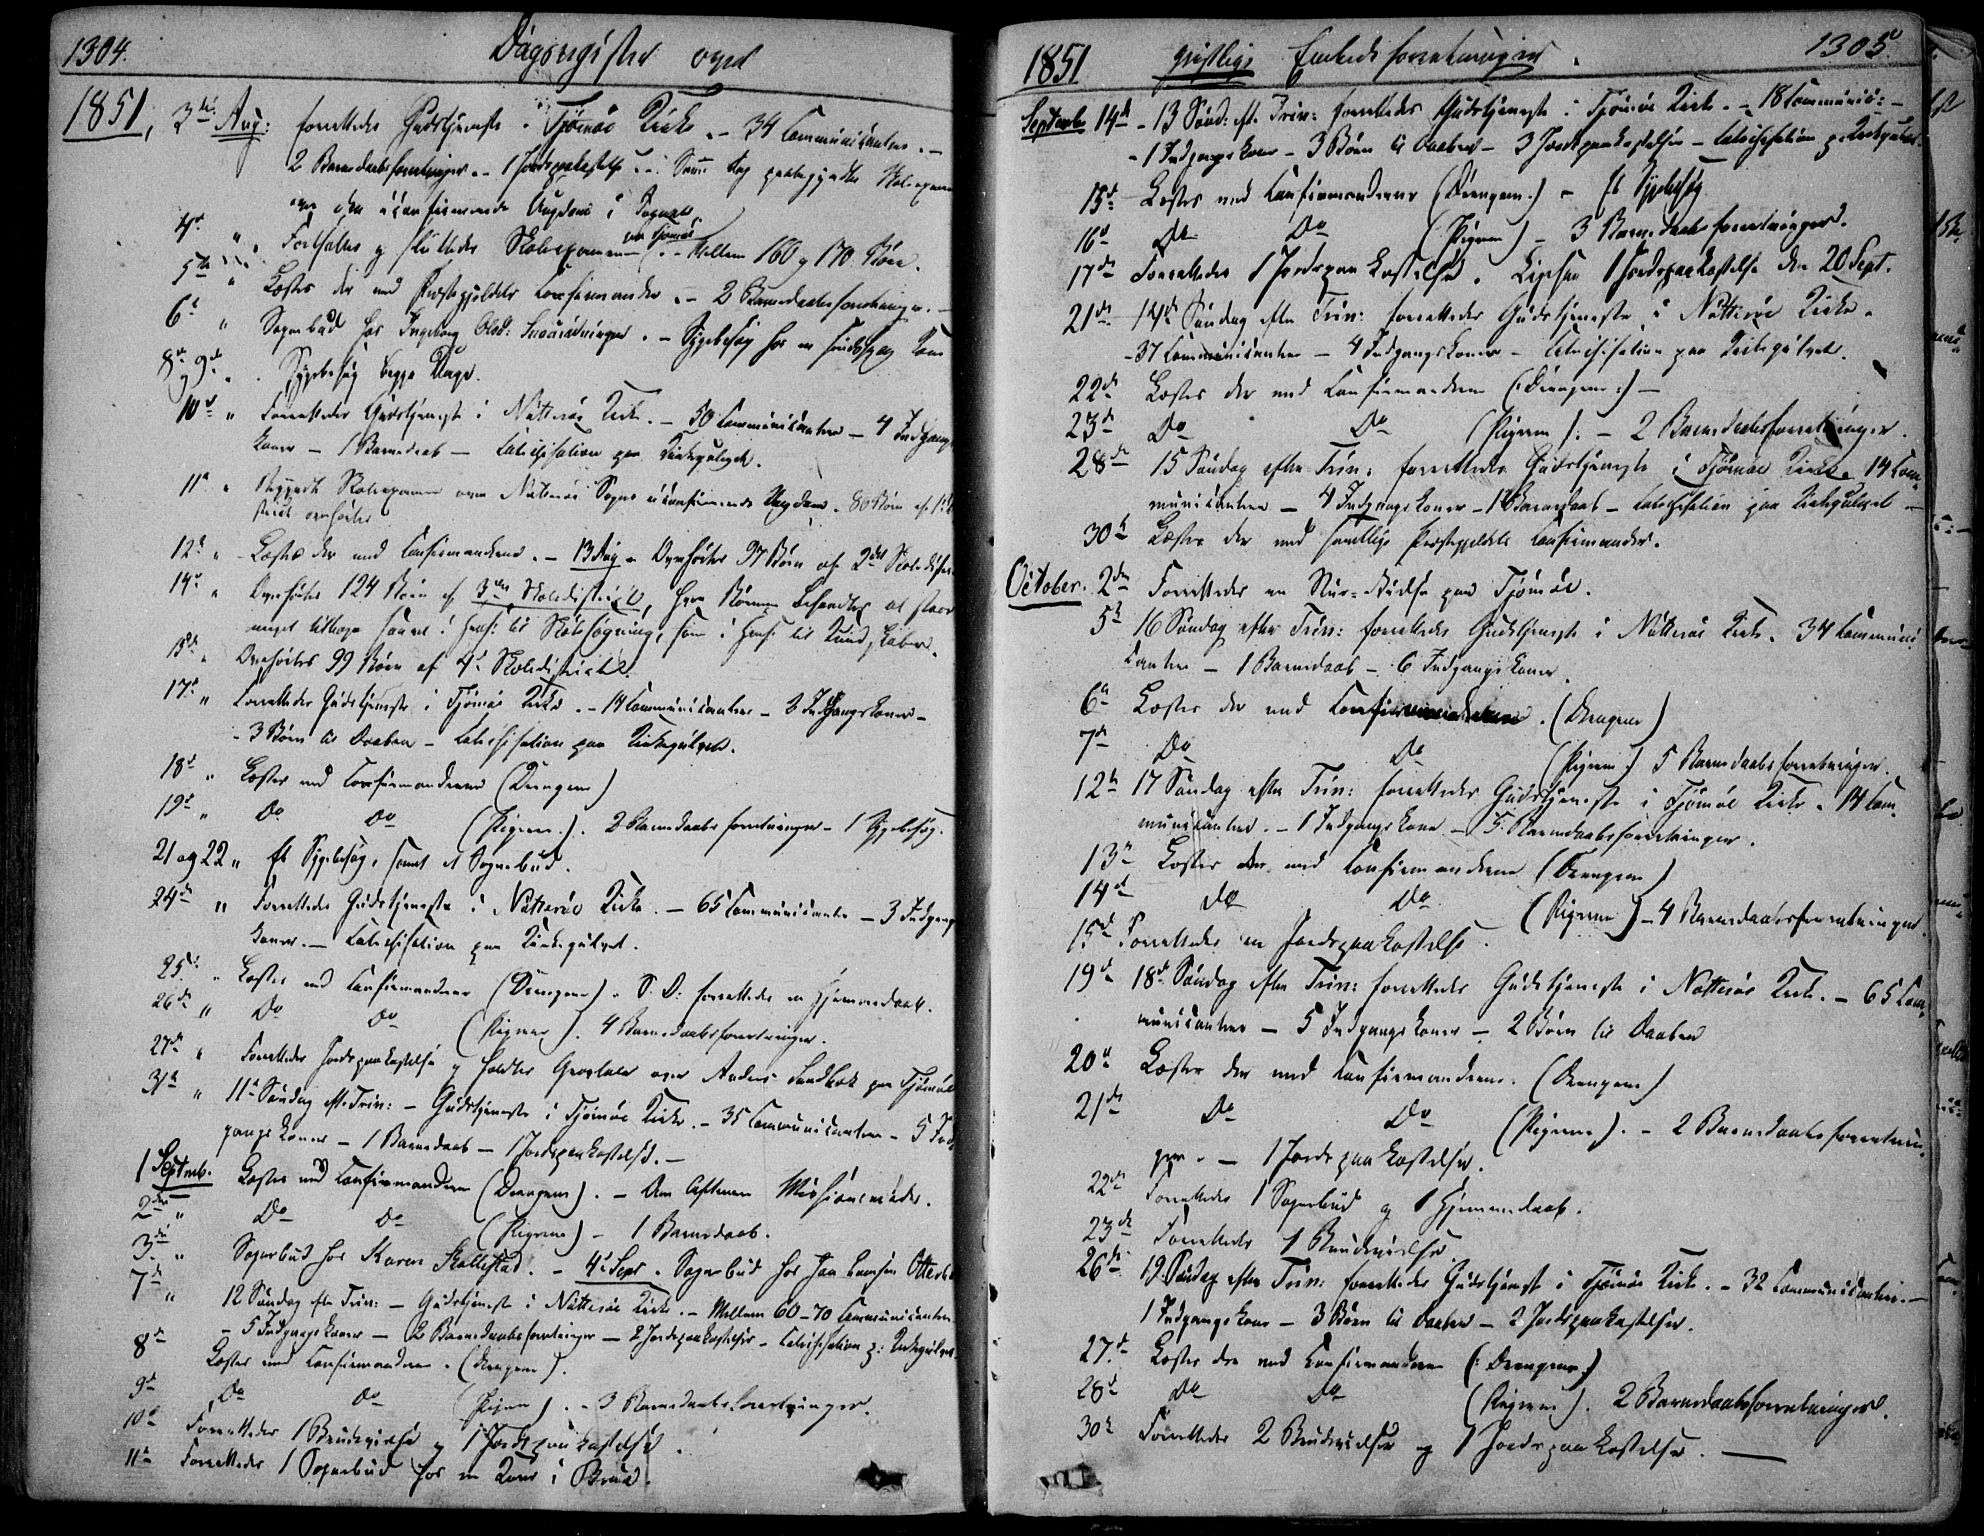 1304.
Dagsregister over
1851, 3die Aug: forrettedes Gudstjeneste i Tjømøe Kirke. - 34 Communicanter. -
2 Barnedaabsforretninger. - 1 Jordspaakastelse. - Samme Dag paabegyndtes Skoleexamen
over den uconfirmerede Ungdom i Sognet.
4de " Fortsattes og sluttedes Skoleexamen paa Tjømøe. - Mellem 160 og 170 Børn.
5te " Læstes der med Præstegjeldets Confirmander. - 2 Barnedaabsforretninger. -
6te " Sognebud hos Ingeborg Olsd: - Sygebesøg hos en
8de og 9de " Sygebesøg begge Dage.
10de " Forrettedes Gudstjeneste i Nøtterøe Kirke. - 50 Communicanter - 4 Indgangs
koner - 1 Barnedaab - Catechisation paa Kirkegulvet.
11te " Skoleexamen over Nøtterøe Sogns uconfirmerede Ungdom. 80 Børn af 1ste
overhørtes
12te " Læstes der med Confirmanderne. - 13 Aug. Overhørtes 97 Børn af 2det Skoledistr.
14de " Overhørtes 124 Børn af 3die Skoledistrict, hvor Børnene befandtes at staae
meget tilbage saavel i Hens: til Skolesøgning, som i Hens: til Kundskaber.
15de " Overhørtes 99 Børn af 4de Skoledistrict.
17de " Forrettedes Gudstjeneste i Tjømøe Kirke. - 14 Communicanter - 6 Indgangskoner -
- 3 Børn til Daaben - Catechisation paa Kirkegulvet.
18de " Læstes med Confirmanderne (Drengene)
19de " Do Do (Pigerne). 2 Barnedaabsforretninger - 1 Sygebesøg.
21 og 22 " Et Sygebesøg, samt et Sognebud.
24de " Forrettedes Gudstjeneste i Nøtterøe Kirke. - 65 Communicanter - 3 Indgangs
koner. - Catechisation paa Kirkegulvet.
25de " Læstes med Confirmanderne (Drengene). S. D: forrettedes en Hjemmedaab.
26de " Do Do (Pigerne). 4 Barnedaabsforretninger.
27de " Forrettedes Jordspaakastelse og holdtes Gravtale over Anders Sandbæk paa Tjømøe
31te " 11te Søndag eft. Trin: - Gudstjeneste i Tjømøe Kirke. - 35 Communicanter - 5 Ind
gangskoner - 1 Barnedaab - 1 Jordspaakastelse. -
1 Septemb. Læstes med Confirmanderne (Drengene). - Om Aftenen Missionsmøde.
2den " Do Do (Pigerne) - 1 Barnedaab.
3die " Sognebud hos Karen Skallestad. - 4de Sept. Sognebud hos
7de " 12 Søndag eft. Trin: - Gudstjeneste i Nøtterøe Kirke. - Mellem 60-70 Communicanter
- 5 Indgangskoner - 2 Barnedaabsforretninger - 2 Jordspaakastelser - Catechisation p: Kirkegulvet.
8de Læstes med Confirmanderne. (Drengene).
9de Do Do (Pigerne). - 3 Barnedaabsforretninger.
10de Forrettedes 1 Brudevielse og 1 Jordspaakastelse.
11te Forrettedes 1 Sognebud hos en Kone i
1851 geistlige Embedsforretninger. 1305.
Septemb 14de - 13 Sønd: eft. Trin: forrettedes Gudstjeneste i Tjømøe Kirke. - 18 Communic: -
- 1 Indgangskone - 3 Børn til Daaben - 3 Jordspaakastelser - Catechisation p: Kirkegulvet.
15de Læstes med Confirmanderne (Drengene.) - Et Sygebesøg
16de Do Do (Pigerne) - 3 Barnedaabsforretninger.
17de Forrettedes 1 Jordspaakastelse. Ligesaa 1 Jordspaakastelse den 20 Sept.
21de 14de Søndag efter Trin: forrettedes Gudstjeneste i Nøtterøe Kirke.
- 37 Communicanter - 4 Indgangskoner - Catechisation paa Kirkegulvet.
22de Læstes der med Confirmanderne (:Drengene:) -
23de Do Do (Pigerne). - 2 Barnedaabsforretninger.
28de 15 Søndag efter Trin: forrettedes Gudstjeneste i Tjømøe Kirke. 14 Com
municanter - 4 Indgangskoner - 1 Barnedaab - Catechisation paa Kirkegulvet -
30te Læstes der med samtlige Præstegjeldets Confirmander.
October. 2den Forrettedes en Brudevielse paa Tjømøe.
5te 16 Søndag efter Trin: forrettedes Gudstjeneste i Nøtterøe Kirke. 34 Communi
canter - 1 Barnedaab - 6 Indgangskoner.
6te Læstes der med Confirmanderne. (Drengene)
7de Do Do (Pigerne) 5 Barnedaabsforretninger.
12te 17 Søndag efter Trin: forrettedes Gudstjeneste i Tjømøe Kirke. 14 Com
municanter. - 1 Indgangskone - 5 Barnedaabsforretninger.
13de Læstes der med Confirmanderne (Drengene)
14de Do Do (Pigerne) - 4 Barnedaabsforretninger.
15de Forrettedes en Jordspaakastelse.
19de 18de Søndag efter Trin: forrettedes Gudstjeneste i Nøtterøe Kirke. - 65 Com
municanter - 5 Indgangskoner - 2 Børn til Daaben
20de Læstes der med Confirmanderne. (Drengene)
21de Do Do (Pigerne). - 2 Barnedaabsforretnin
ger. - 1 Jordspaakastelse.
22de Forrettedes 1 Sognebud og 1 Hjemmedaab.
23de Forrettedes 1 Brudevielse
26de 19 Søndag efter Trin: forrettedes Gudstjeneste i Tjømøe Kirke. - 32 Communicanter. -
1 Indgangskone - 3 Børn til Daaben - 2 Jordspaakastelser.
27de Læstes der med Confirmanderne (: Drengene)
28de Do Do (Pigerne). 2 Barnedaabsforretninger.
30te Forrettedes 2 Brudevielser og 1 Jordspaakastelse. -